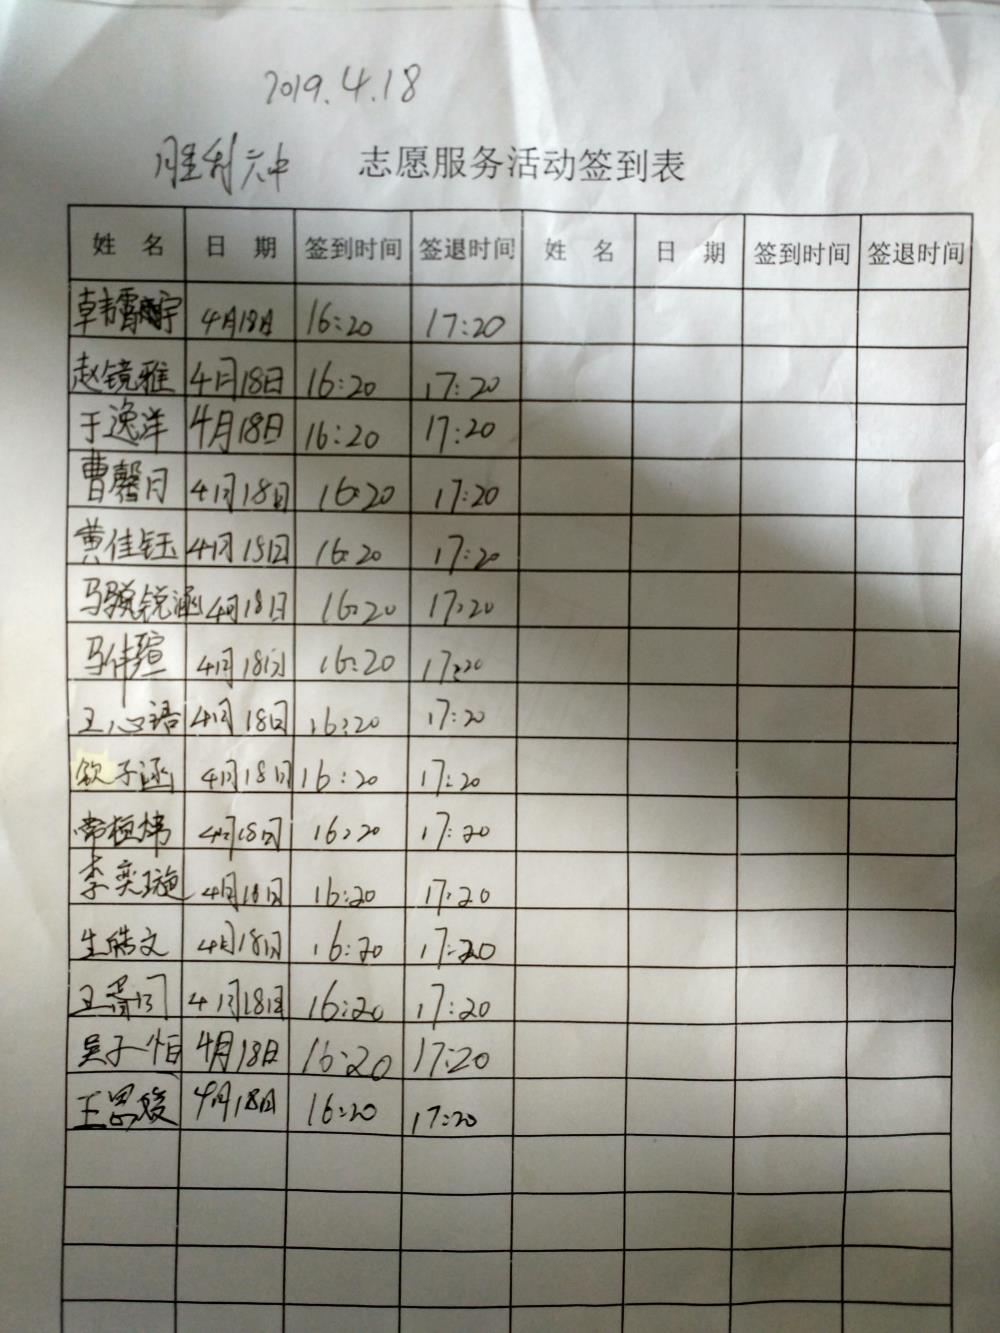 2019.4.18
胜利六中 志愿服务活动签到表
姓 名 日 期 签到时间 签退时间 姓 名 日 期 签到时间 签退时间
4月18日 16:20 17:20
赵镜雅 4月18日 16:20 17:20
于逸洋 4月18日 16:20 17:20
曹馨月 4月18日 16:20 17:20
黄佳钰 4月18日 16:20 17:20
马骁锐涵 4月18日 16:20 17:20
马伟瑄 4月18日 16:20 17:20
王心语 4月18日 16:20 17:20
钦子涵 4月18日 16:20 17:20
常桓炜 4月18日 16:20 17:20
李奕璇 4月18日 16:20 17:20
生皓文 4月18日 16:20 17:20
4月18日 16:20 17:20
吴子怡 4月18日 16:20 17:20
王思媛 4月18日 16:20 17:20